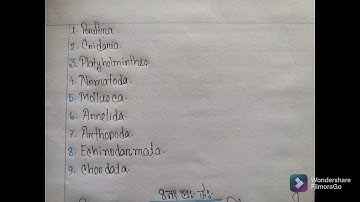 1. Porifera
2. Cnidaria
3. Platyhelminthes
4. Nematoda
5. Mollusca
6. Annelida
7. Arthopoda
8. Echinodarmata
9. Chordata
Wondershare
FilmoraGo